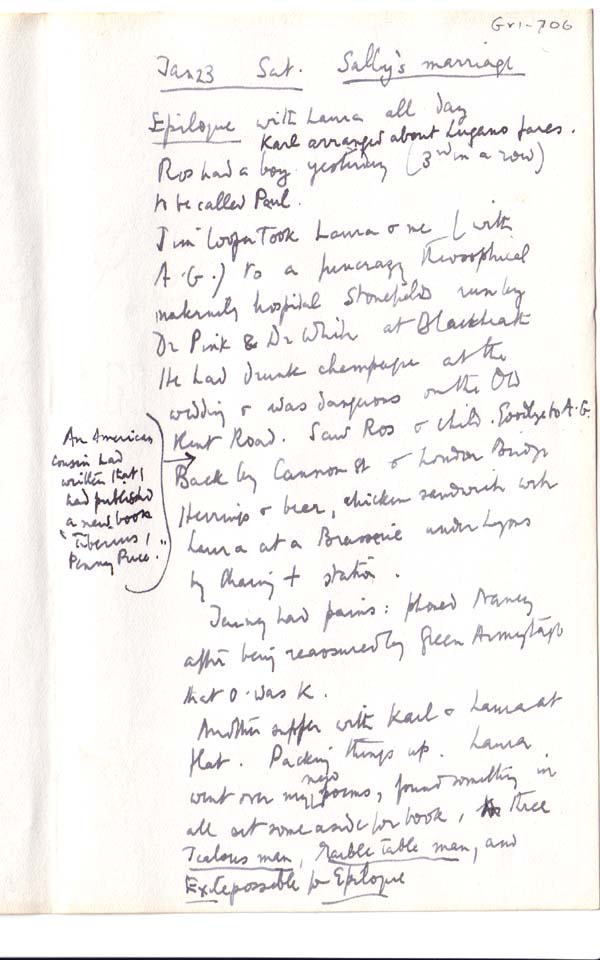 Gr1-706
Jan 23 Sat. Sally's marriage
Epilogue with Laura all day
Karl arranged about Lugano fares.
Ros had a boy yesterday (3rd in a row)
to be called Paul.
Jim Cooper took Laura & me (with
A.G.) to a theosophical
maternity hospital Stonefields run by
Dr Pink & Dr White at Blackheath
He had drunk champagne at the
wedding & was dangerous on the Old
Kent Road. Saw Ros & child. Goodbye to A.G.
Back by Cannon St & London Bridge
Herrings & beer, chicken sandwich with
Laura at a Brasserie under Lyons
by Charing + station.
An American
cousin had
written that I
had published
a new book
"Tiberius,"
Penny Price.
Jenny had pains: phoned Nancy
after being reassured by Green Armytage
that O. was K.
Another supper with Karl & Laura at
flat. Packing things up. Laura
went over my new poems, found something in
all set some aside for book, three
Jealous man, table man, and
Exile possible for Epilogue